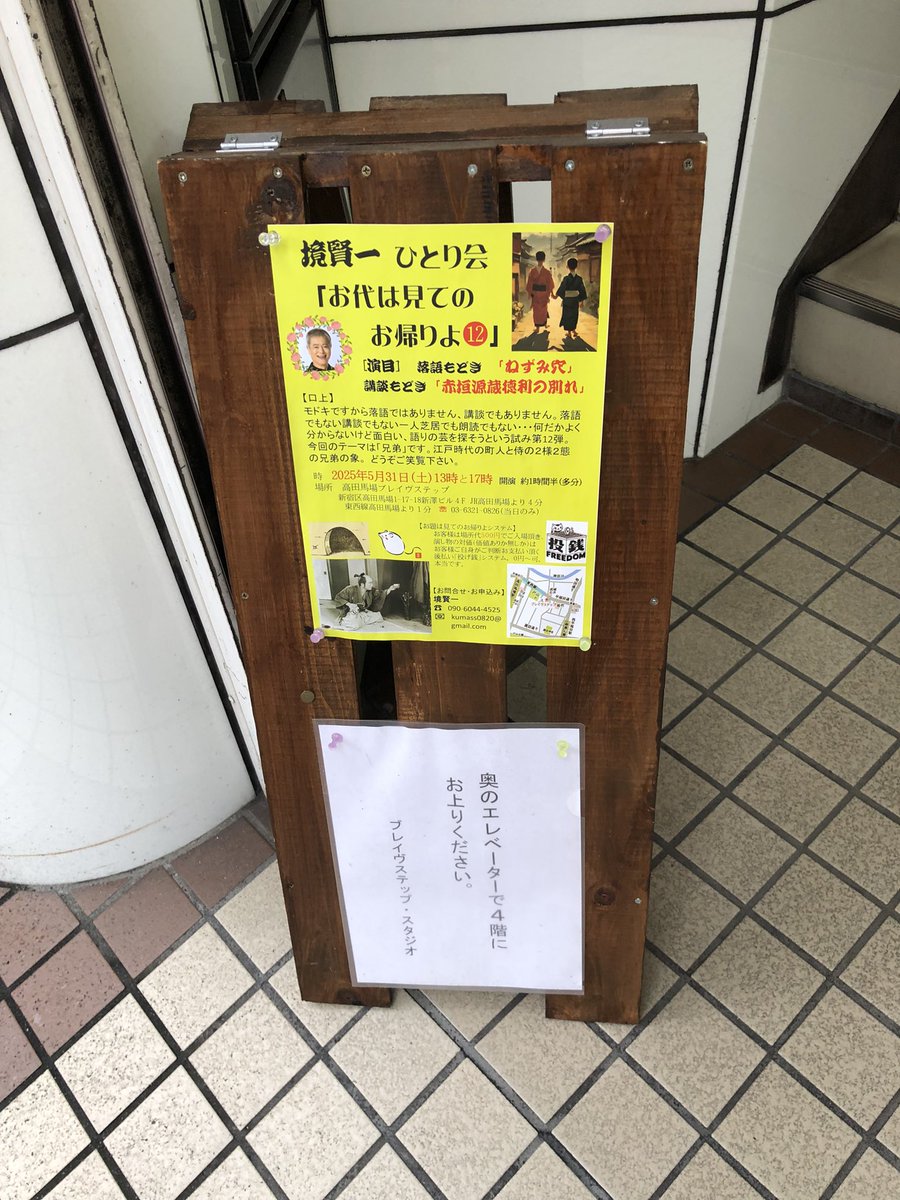 境賢一 ひとり会
「お代は見ての
お帰りよ⑫」
［演目］ 落語もどき 「ねずみ穴」
講談もどき 「赤垣源蔵徳利の別れ」
【口上】
モドキですから落語ではありません、講談でもありません。落語
でもない講談でもない一人芝居でも朗読でもない・・・何だかよく
分からないけど面白い、語りの芸を探そうという試み第12弾。
今回のテーマは「兄弟」です。江戸時代の町人と侍の２様２態
の兄弟の象。 どうぞご笑覧下さい。
時 2025年5月31日(土)13時と17時 開演 約1時間半(多分)
場所 高田馬場ブレイヴステップ
新宿区高田馬場1-17-18新澤ビル４Ｆ JR高田馬場より４分
東西線高田馬場より１分 ☎ 03-6321-0826(当日のみ)
【お題は見てのお帰りよシステム】
お客様は場所代500円でご入場頂き、
演し物の対価(価値ありか無しか)は
お客様ご自身がご判断お支払い頂く
後払い「投げ銭」システム、0円～可、
本当です。
投銭
FREEDOM
【お問合せ・お申込み】
境賢一
☎ 090-6044-4525
✉ kumass0820@
gmail.com
奥のエレベーターで４階に
お上りください。
ブレイヴステップ・スタジオ